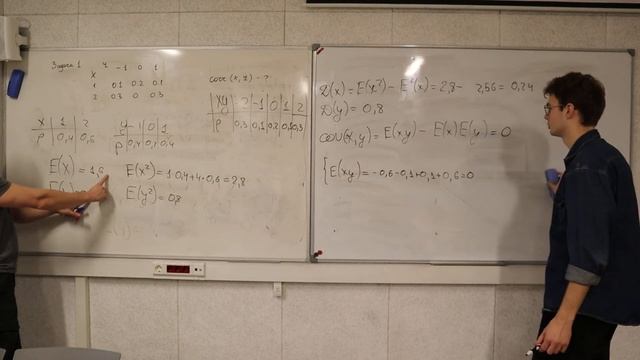 Задача 1
X Y -1 0 1
1 0.1 0.2 0.1
2 0.3 0 0.3
corr(x, y) - ?
xy -2 -1 0 1 2
P 0,3 0,1 0,2 0,1 0,3
X 1 2
P 0,4 0,6
y -1 0 1
P 0,4 0,2 0,4
E(x) = 1,6
E(x²) = 1·0,4+4·0,6=2,8
E(y²) = 0,8
D(x) = E(x²) - E²(x) = 2,8 - 2,56 = 0,24
D(y) = 0,8
cov(x,y) = E(xy) - E(x)E(y) = 0
E(xy) = -0,6-0,1+0,1+0,6=0